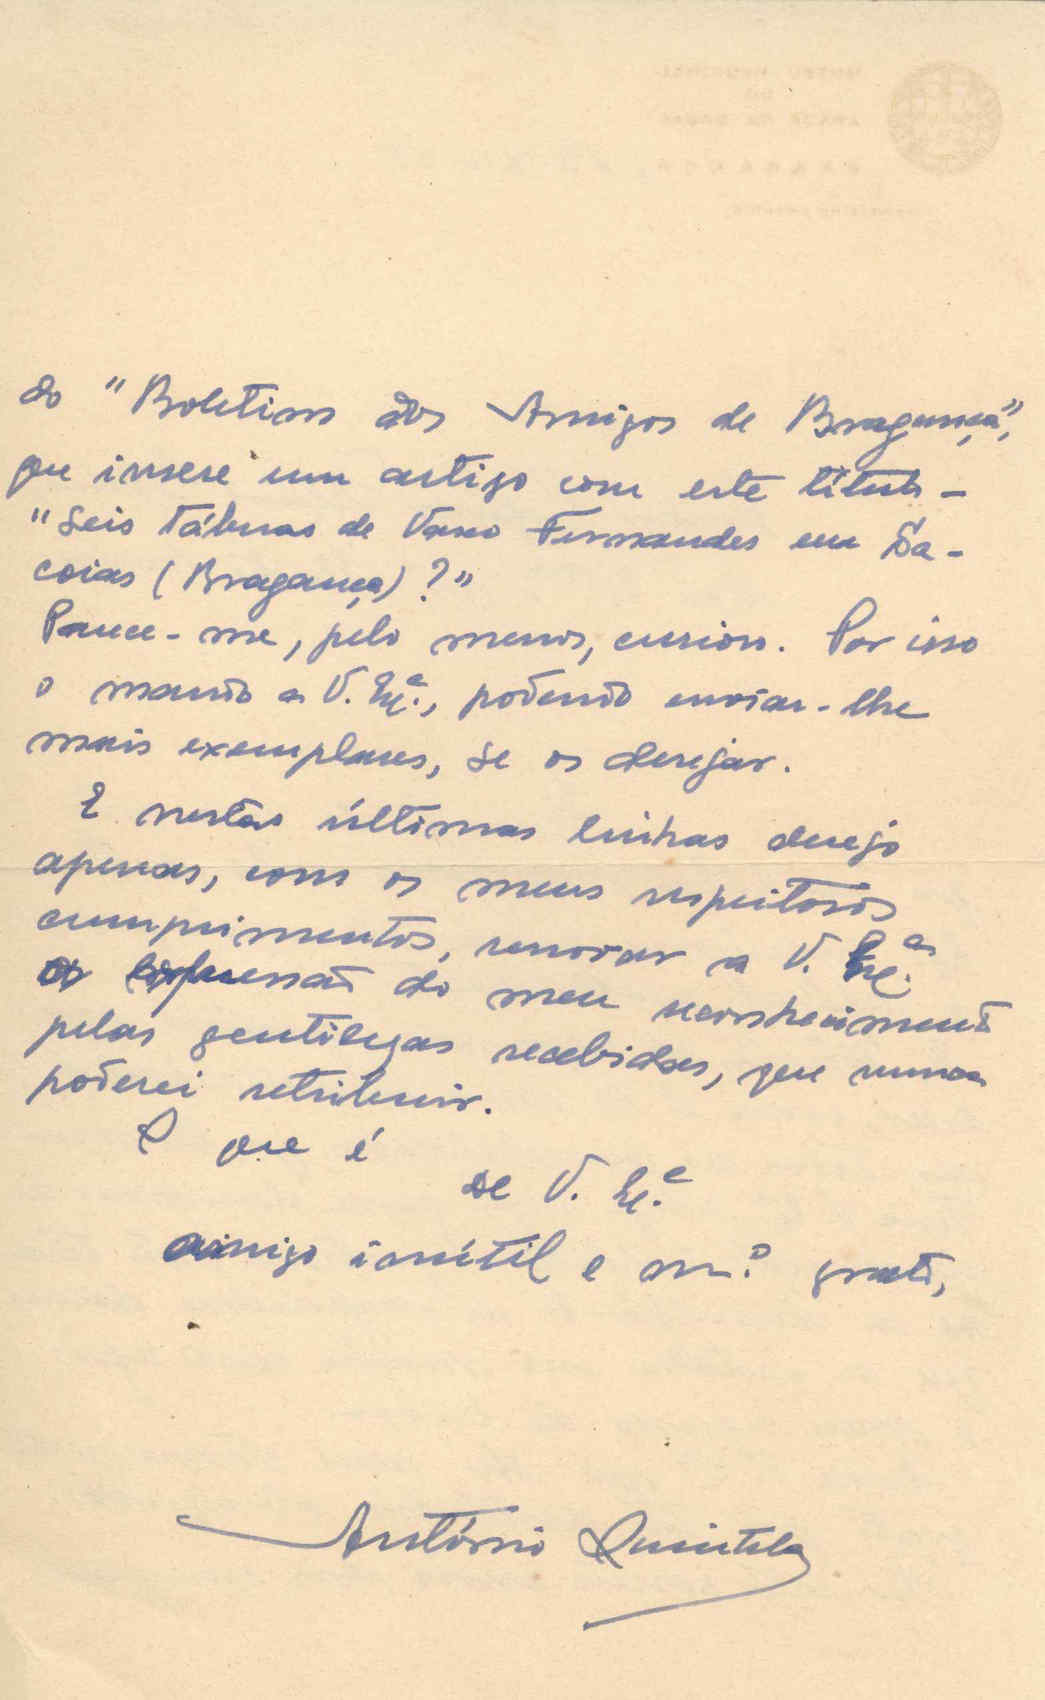 do "Boletim dos Amigos de Bragança",
que insere um artigo com este título –
"Seis Tábuas de Vasco Fernandes em Sa-
coias (Bragança)?"
Parece-me, pelo menos, curioso. Por isso
o mando a V. Ex.ª, podendo enviar-lhe
mais exemplares, se os desejar.
E nestas últimas linhas desejo
apenas, com os meus respeitosos
cumprimentos, renovar a V. Ex.ª
a expressão do meu reconhecimento
pelas gentilezas recebidas, que nunca
poderei retribuir.
E que é
de V. Ex.ª
amigo inútil e m.º grato,
António Quintela